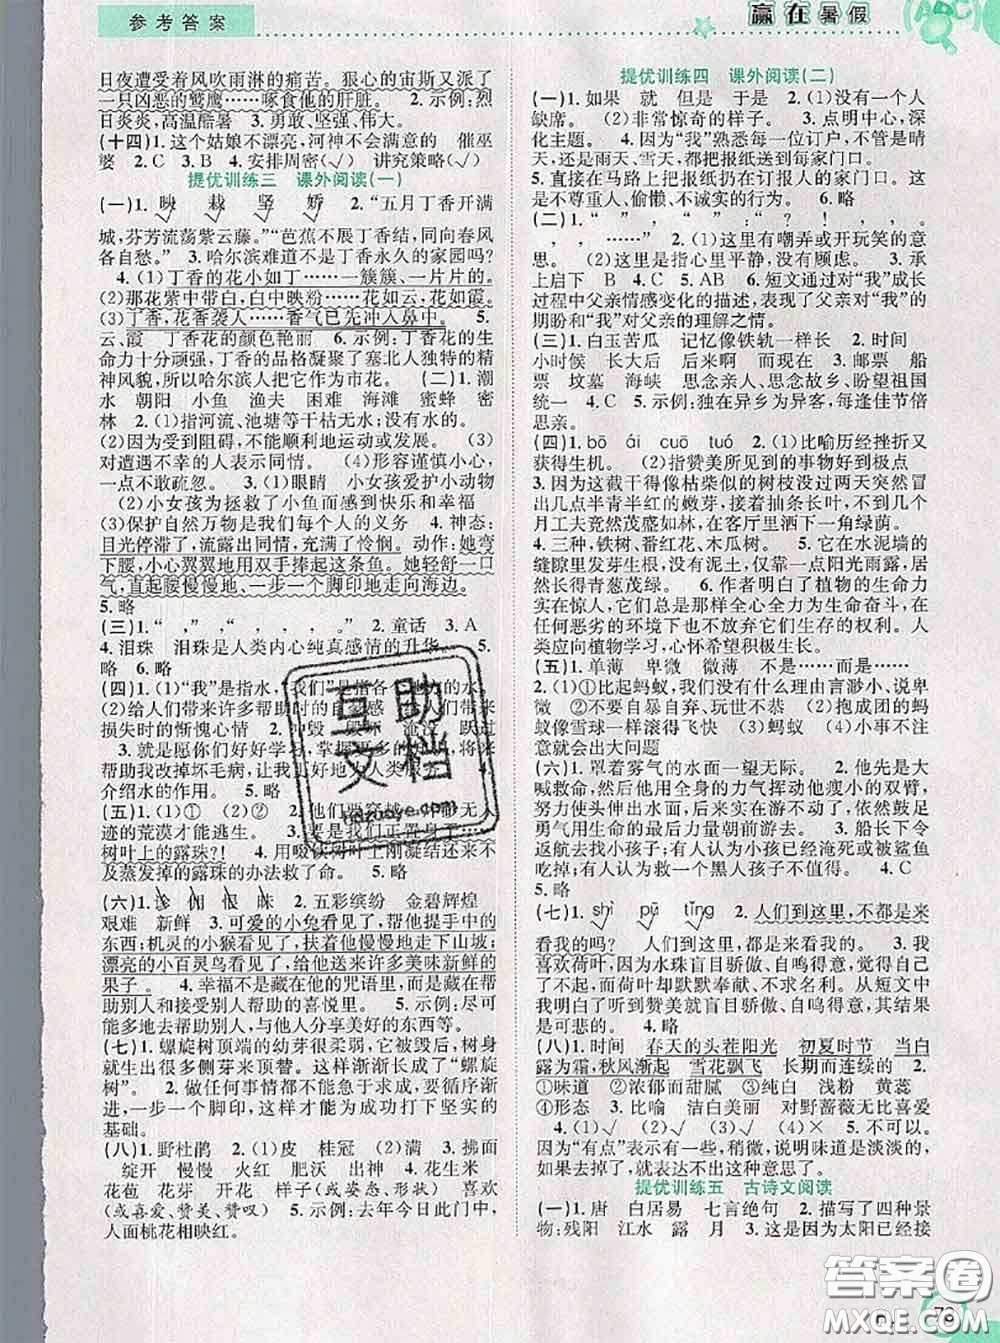 参考答案
赢在暑假
日夜遭受着风吹雨淋的痛苦。狠心的宙斯又派了
一只凶恶的鹫鹰……啄食他的肝脏。 2.示例:烈
日炎炎,高温酷暑 3.勇敢、坚强、伟大。
(十四)1.这个姑娘不漂亮,河神不会满意的 催巫
婆 2.C 3.B 4.安排周密(√) 讲究策略(√)
提优训练三 课外阅读(一)
(一)1.映 栽 坚 娇 2.“五月丁香开满
城,芬芳流荡紫云藤。”“芭蕉不展丁香结,同向春风
各自愁。” 3.哈尔滨难道不是丁香永久的家园吗?
4.(1)丁香的花小如丁……一簇簇,一片片的。
(2)那花紫中带白,白中映粉……花如云,花如霞。
(3)丁香,花香袭人……香气已先冲入鼻中。 5.
云、霞 丁香花的颜色艳丽 6.示例:丁香花的生
命力十分顽强,丁香的品格凝聚了塞北人独特的精
神风貌,所以哈尔滨人把它作为市花。 (二)1.潮
水 朝阳 小鱼 渔夫 困难 海滩 蜜蜂 密
林 2.(1)指河流、池塘等干枯无水;没有水的。
(2)因为受到阻碍,不能顺利地运动或发展。 (3)
对遭遇不幸的人表示同情。 (4)形容谨慎小心,
一点不敢疏忽。 3.(1)眼睛 小女孩爱护小动物
(2)小女孩为拯救了小鱼而感到快乐和幸福
(3)保护自然万物是我们每个人的义务 4.神态:
目光停滞了,流露出同情,充满了怜悯。 动作:她弯
下腰,小心翼翼地用双手捧起这条鱼。她轻舒一口
气,直起腰慢慢地、一步一个脚印地走向海边。
5.略
(三)1.“ ”, “ , , , 。” 2.童话 3.A
4.泪珠 泪珠是人类内心纯真感情的升华 5.
略 6.略
(四)1.(1)“我”是指水,“我们”是指各 的水。
(2)给人们带来许多帮助时的自豪感 人们带来
损失时的惭愧心情 2.冲毁 淹没 跃过
3.就是愿你们好好学习,掌握 将来
帮助我改掉坏毛病,让我更好地为人类服务 4.
介绍水的作用。 5.略
(五)1.(1)① (2)② 2.他们要穿越 都无人
迹的荒漠才能逃生。 3.要是我们正置身于……
树叶上的露珠?! 4.用啜饮树叶上刚凝结还来不
及蒸发掉的露珠的办法救了命。 5.略
(六)1. 2.五彩缤纷 金碧辉煌
艰难 新鲜 3.可爱的小兔看见了,帮他提手中的
东西;机灵的小猴看见了,扶着他慢慢地走下山坡;
漂亮的小百灵鸟看见了,给他送来许多美味新鲜的
果子。 4.幸福不是藏在他的咒语里,而是藏在帮助
别人和接受别人帮助的喜悦里。 5.示例:尽可
能多地去帮助别人,与他人分享美好的东西等。
(七)1.螺旋树顶端的幼芽很柔弱,它被毁灭后,下
面的侧芽就会来顶替。这样渐渐长成了“螺旋
树”。 2.做任何事情都不能过于着急,要循序渐
进,一步一个脚印,这样才能为成功打下坚实的
基础。
(八)1.野杜鹃 2.(1)皮 桂冠 (2)满 3.拂面
绽开 慢慢 火红 肥沃 出神 4.花生米
花苞 花芽 开花 样子(或姿态、形状) 喜欢
(或喜爱、赞美、赞叹) 5.示例:去年今日此门中,
人面桃花相映红。
提优训练四 课外阅读(二)
(一)1.如果 就 但是 于是 2.(1)没有一个人
缺席。 (2)非常惊奇的样子。 3.点明中心,深
化主题。 4.因为“我”熟悉每一位订户,不管是晴
天,还是雨天、雪天,都把报纸送到每一家门口。
5.直接在马路上把报纸扔在订报人的家门口。
是不尊重人、偷懒、不诚实的行为。 6.略
(二)1. , “ , ” “ ”:“ ?!,
, , ……” 2.(1)这里有嘲弄或开玩笑的意
思。 (2)这里是指心里平静,没有顾虑。 3.承
上启下 4.C 5.AB 6.短文通过对“我”成长
过程中父亲情感变化的描述,表现了父亲对“我”的
期盼和“我”对父亲的理解之情。
(三)1.白玉苦瓜 记忆像铁轨一样长 2.时间
小时候 长大后 后来啊 而现在 3.邮票 船
票 坟墓 海峡 思念亲人、思念故乡、盼望祖国
统一 4.C 5.示例:独在异乡为异客,每逢佳节倍
思亲。
(四)1.bō ái cuō tuó 2.(1)比喻历经挫折又
获得生机。 (2)指赞美所见到的事物好到极点
3.因为这截干得像枯柴似的树枝没过两天突然冒
出几点半青半红的嫩芽,接着抽条长叶,到了几个
月工夫竟然茂盛如林,在院子里洒下一角绿荫。
4.三种,铁树、番红花、木瓜树。 5.它在水泥墙的
缝隙里发芽生根,没有泥土,没一点阳光雨露,居然
长得青葱茂绿。 6.作者明白了植物的生命力
实在惊人,它们是以全心全力为生命奋斗,在任
何恶劣的环境下也不放弃它们生存的权利。人
类应向植物学习,心怀希望积极生长。
(五)1.单薄 卑微 微薄 不是……而是……
2.(1)①比起蚂蚁,我们太高大了 言渺小、说卑
微 ②不要自暴自弃、玩世不恭 (2)抱成团的蚂
蚁像雪球一样滚得飞快 (3)蚂蚁 (4)小奇迹
就会出大问题
(六)1.罩着雾气的水面一望无际。 2.他先是大
喊救命,然后他用全身的力气挥动他瘦小的双臂,
努力使头伸出水面,后来实在游不动了,依旧鼓起
勇气用生命的最后力量朝前游去。 3.船长下令
返航去找小孩;有人认为小孩已经淹死或者被鲨鱼
吃掉了;有人认为救一个黑人孩子不值得。 4.C
5.略
(七)1.shì pū tǐng 2.人们到这里,不都是来
看我的吗? 人们到这里,都是来看我的。 3.我
喜欢荷叶,因为水珠盲目骄傲、自鸣得意,觉得自己
了不起,而荷叶却默默奉献、不求名利。从短文中
我明白了听到赞美就盲目骄傲、自鸣得意,其结果
是可悲的。 4.略
(八)1.时间 春天的头茬阳光 初夏时节 当白
露为霜,秋风渐起 雪花飘飞 长期而连续的 2.
①味道 ②浓郁而甜腻 ③洁白 浅粉 黄蕊
④形态 3.比喻 洁白美丽 对野蔷薇无比喜爱
4.(1)√ (2)√ (3)√ (4)√ 5.不可以。
因为“有点”表示有一些,稍微,说明味道是淡淡的,
如果去掉了,就表达不出这一层意思了。
提优训练五 古诗文阅读
(一)1.唐 白居易 七言绝句 2.描写了四种景
物:残阳 江水 露 月 3.这是因为太阳已经接
互助文档
hdzuoye.com
答案圈
MXQE.COM